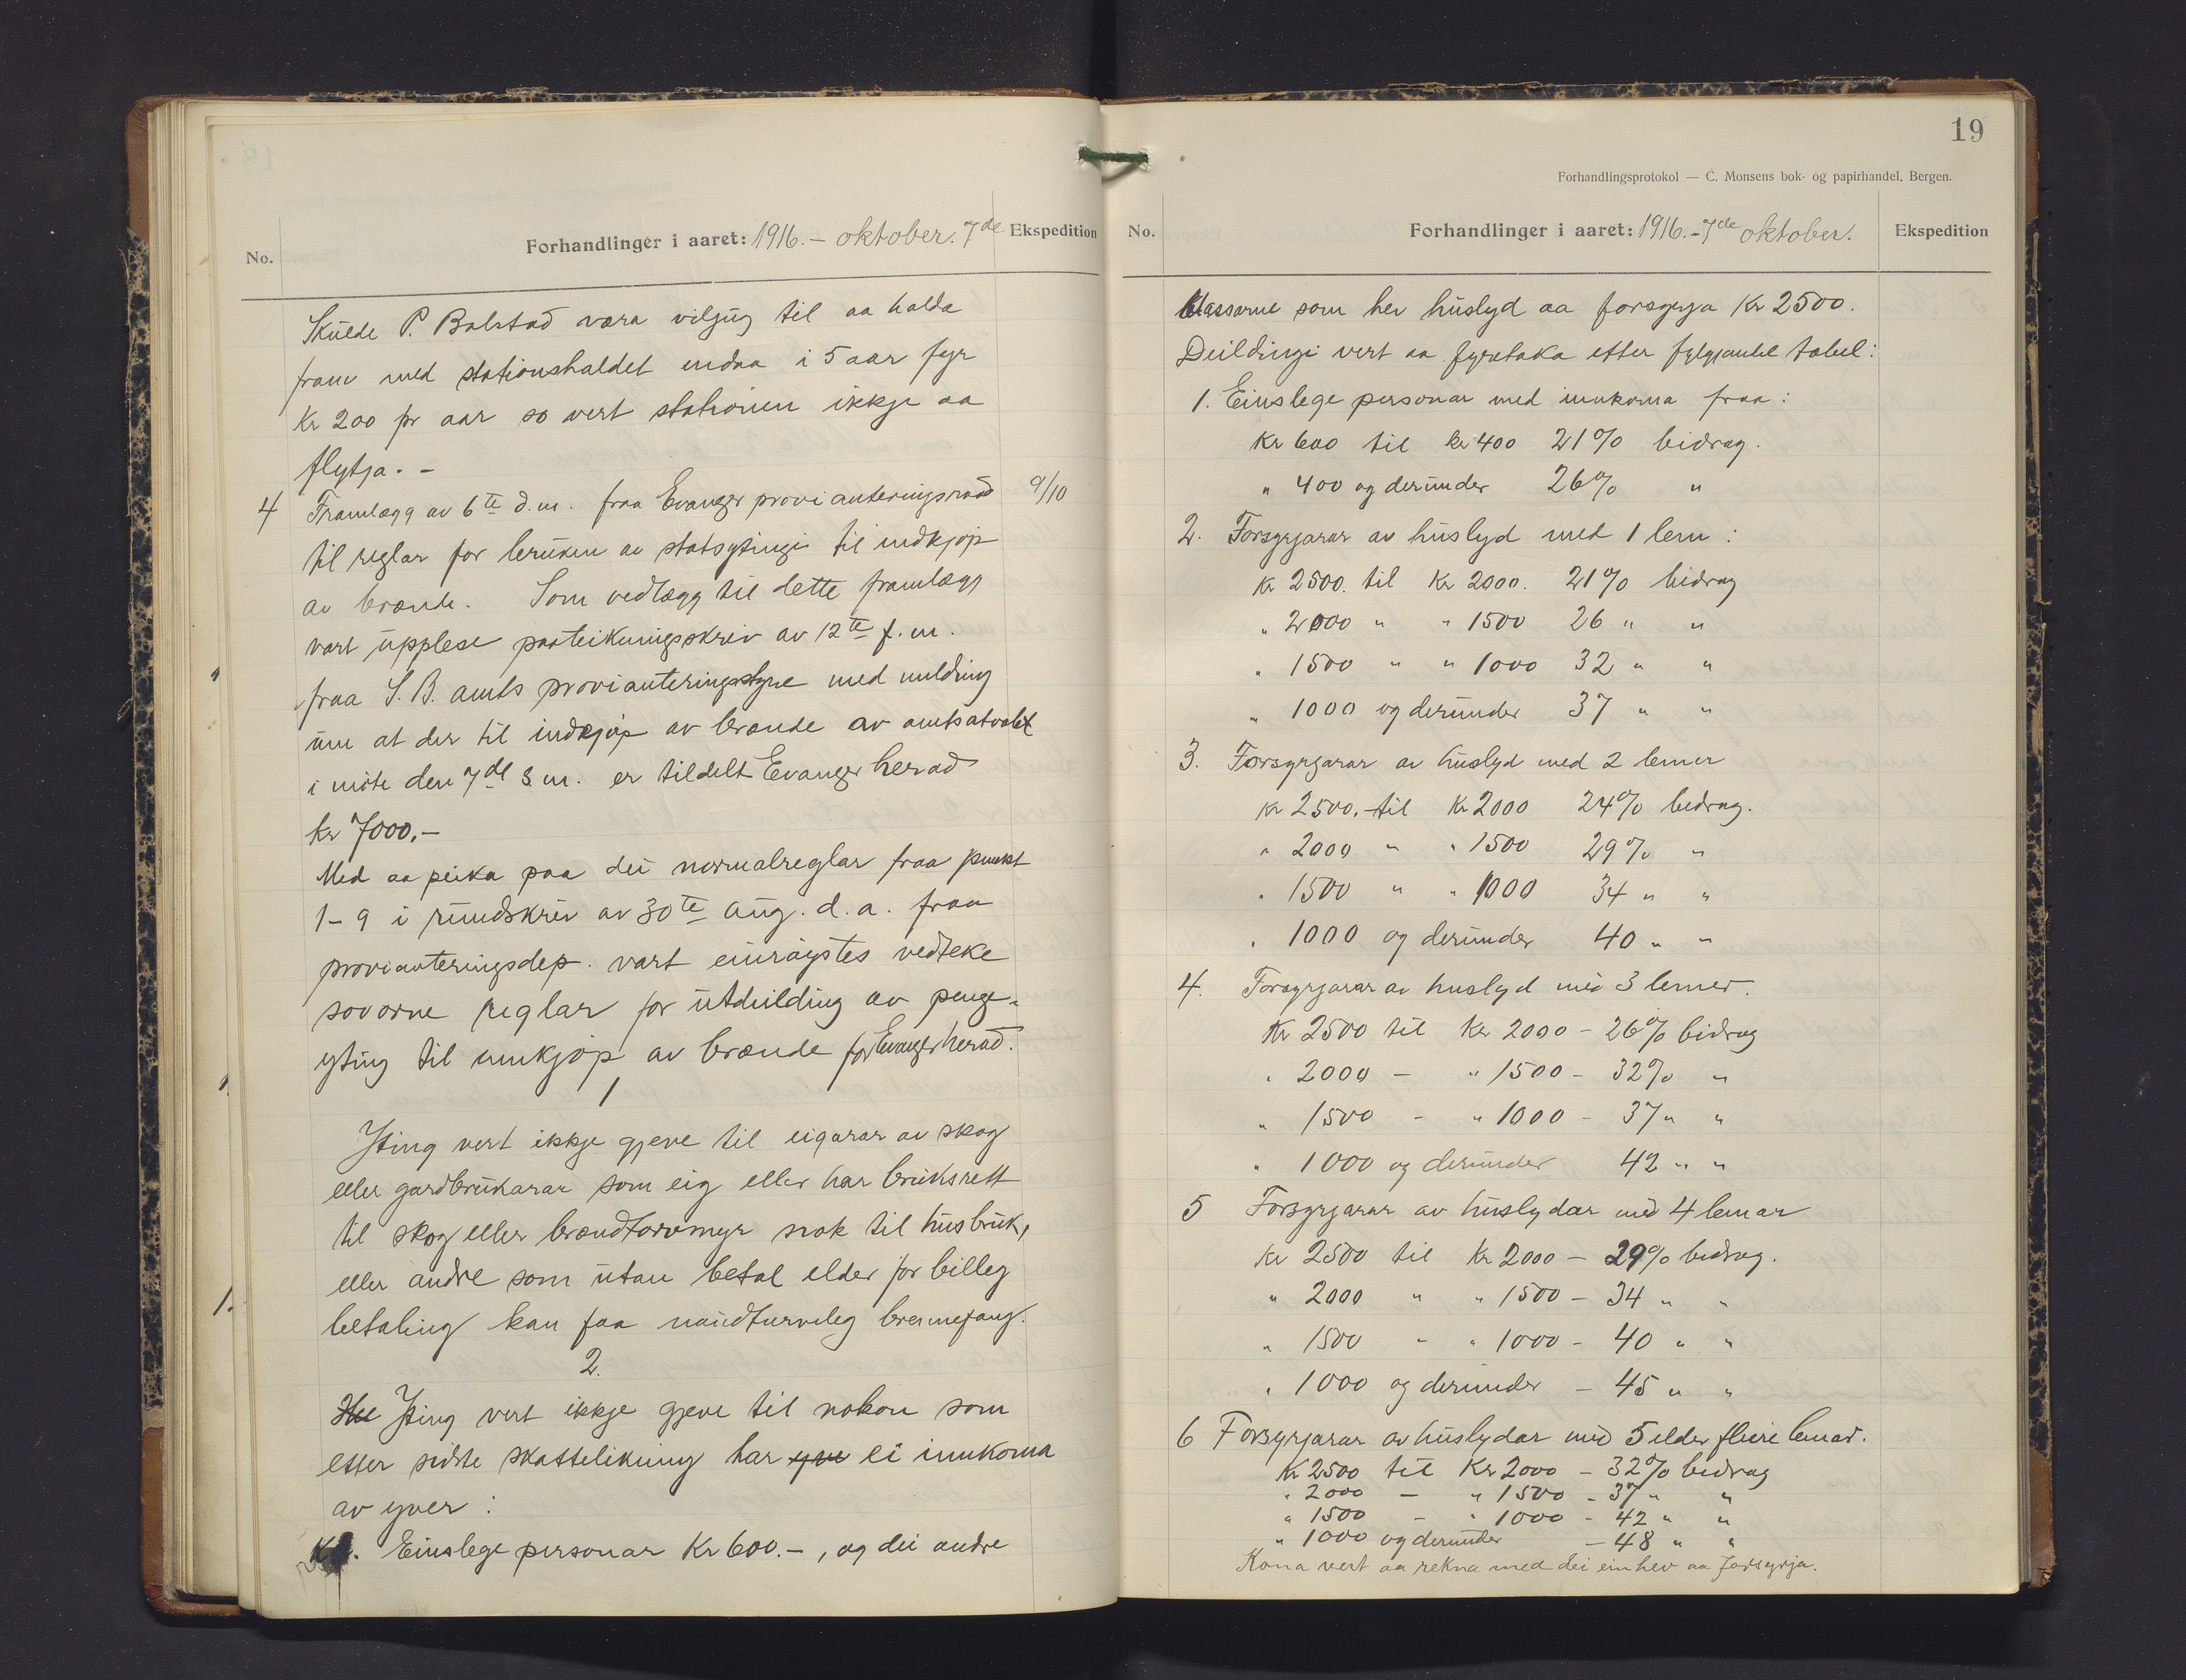 No.
Forhandlinger i aaret: 1916. – oktober. 7de
Ekspedition
Skulde P. Bolstad vera viljug til aa halda
fram med stationshaldet endaa i 5 aar fyr
Kr 200 pr aar so vert stationen ikkje aa
flytja. –
4 Framlegg av 6te d.m. fraa Evanger provianteringsraad 9/10
til reglar for bruken av statsytingi til indkjøp
av brænde. Som vedlegg til dette framlegg
vart upplese paateikningsskriv av 12te f.m.
fraa S. B. amts provianteringsstyre med melding
um at der til indkjøp av brænde av amtsutvalet
i møte den 7de s.m. er tildelt Evanger herad
kr 7000,–
Med aa peika paa dei normalreglar fraa punkt
1–9 i rundskriv av 30te aug. d.a. fraa
provianteringsdep. vart einrøystes vedteke
sovorne reglar for utdeilding av penge-
yting til innkjøp av brænde for Evanger herad.
1
Yting vert ikkje gjeve til eigarar av skog
eller gardbrukarar som eig eller har bruksrett
til skog eller brændtorvmyr nok til husbruk,
eller andre som utan betal elder for billeg
betaling kan faa naudturveleg brennefang.
2.
Yting vert ikkje gjeve til nokon som
etter sidste skattelikning har yve ei innkoma
av yver :
Einslege personar Kr 600.–, og dei andre
19
Forhandlingsprotokol — C. Monsens bok- og papirhandel, Bergen.
No.
Forhandlinger i aaret: 1916. – 7de oktober.
Ekspedition
klassarne som hev huslyd aa forsyrja Kr 2500.
Deildingi vert aa fyretaka etter fylgjande tabel:
1. Einslege personar med innkoma fraa :
Kr 600 til kr 400 21% bidrag.
" 400 og derunder 26% "
2. Forsyrjarar av huslyd med 1 lem :
Kr 2500. til Kr 2000. 21% bidrag
" 2000 " " 1500 26 " "
" 1500 " " 1000 32 " "
" 1000 og derunder 37 " "
3. Forsyrgjarar av huslyd med 2 lemer
Kr 2500. til Kr 2000 24% bidrag.
" 2000 " " 1500 29% "
" 1500 " " 1000 34 " "
" 1000 og derunder 40 " "
4. Forsyrgjarar av huslyd med 3 lemer.
Kr 2500 til Kr 2000 – 26% bidrag
" 2000 – " 1500 – 32% "
" 1500 – " 1000 – 37 " "
" 1000 og derunder 42 " "
5 Forsyrgjarar av huslydar med 4 lemar
Kr 2500 til Kr 2000 – 29% bidrag.
" 2000 " " 1500 – 34 " "
" 1500 " " 1000 – 40 " "
" 1000 og derunder – 45 " "
6 Forsyrgjarar av huslydar med 5 elder fleire lemar.
Kr 2500 til Kr 2000 – 32% bidrag
" 2000 – " 1500 – 37 " "
" 1500 – " 1000 – 42 " "
" 1000 og derunder – 48 " "
Kona vert aa rekna med dei ein hev aa forsyrja.